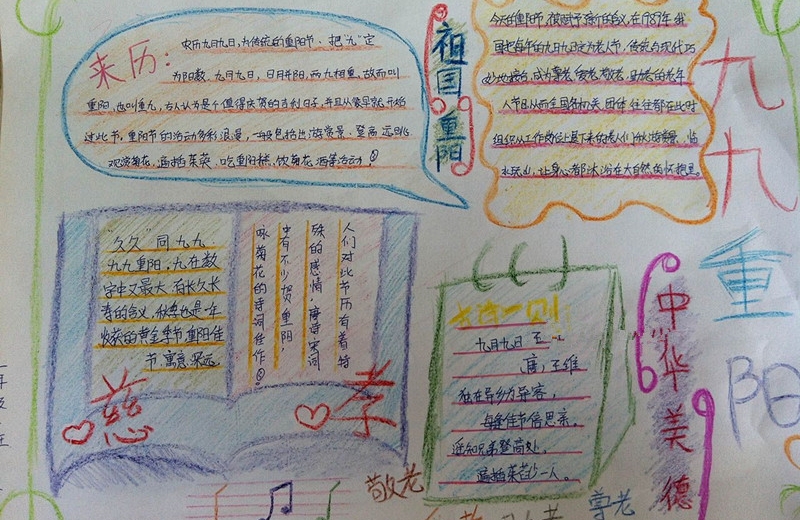 来历:
农历九月九日,为传统的重阳节。把"九"定
为阳数,九月九日,日月并阳,两九相重,故而叫
重阳,也叫重九,古人认为是个值得庆贺的吉利日子,并且从很早就开始
过此节,重阳节的活动多彩浪漫,一般包括出游赏景、登高远眺
观赏菊花、遍插茱萸、吃重阳糕、饮菊花酒等活动
祖国重阳
今天的重阳节,被赋予了新的含义,在1989年,我
国把每年的九月九日定为老人节,传统与现代巧
妙地结合,成为尊老、敬老、爱老、助老的老年
人节日。全国各机关、团体,往往都在此时
组织从工作岗位上退下来的老人们秋游赏景,临
水玩山,让身心都沐浴在大自然的怀抱里。
九九
重阳
"久久"同九九
九九重阳,九在数
字中又最大,有长久长
寿的含义,秋季也是一年
收获的黄金季节重阳佳
节,寓意深远,
人们对此节历有着特
殊的感情,唐诗宋词
中有不少贺重阳,
咏菊花的诗词佳作。
慈
孝
古诗一则
九月九日
唐,王维
独在异乡为异客,
每逢佳节倍思亲。
遥知兄弟登高处,
遍插茱萸少一人。
中华美德
敬老
尊老